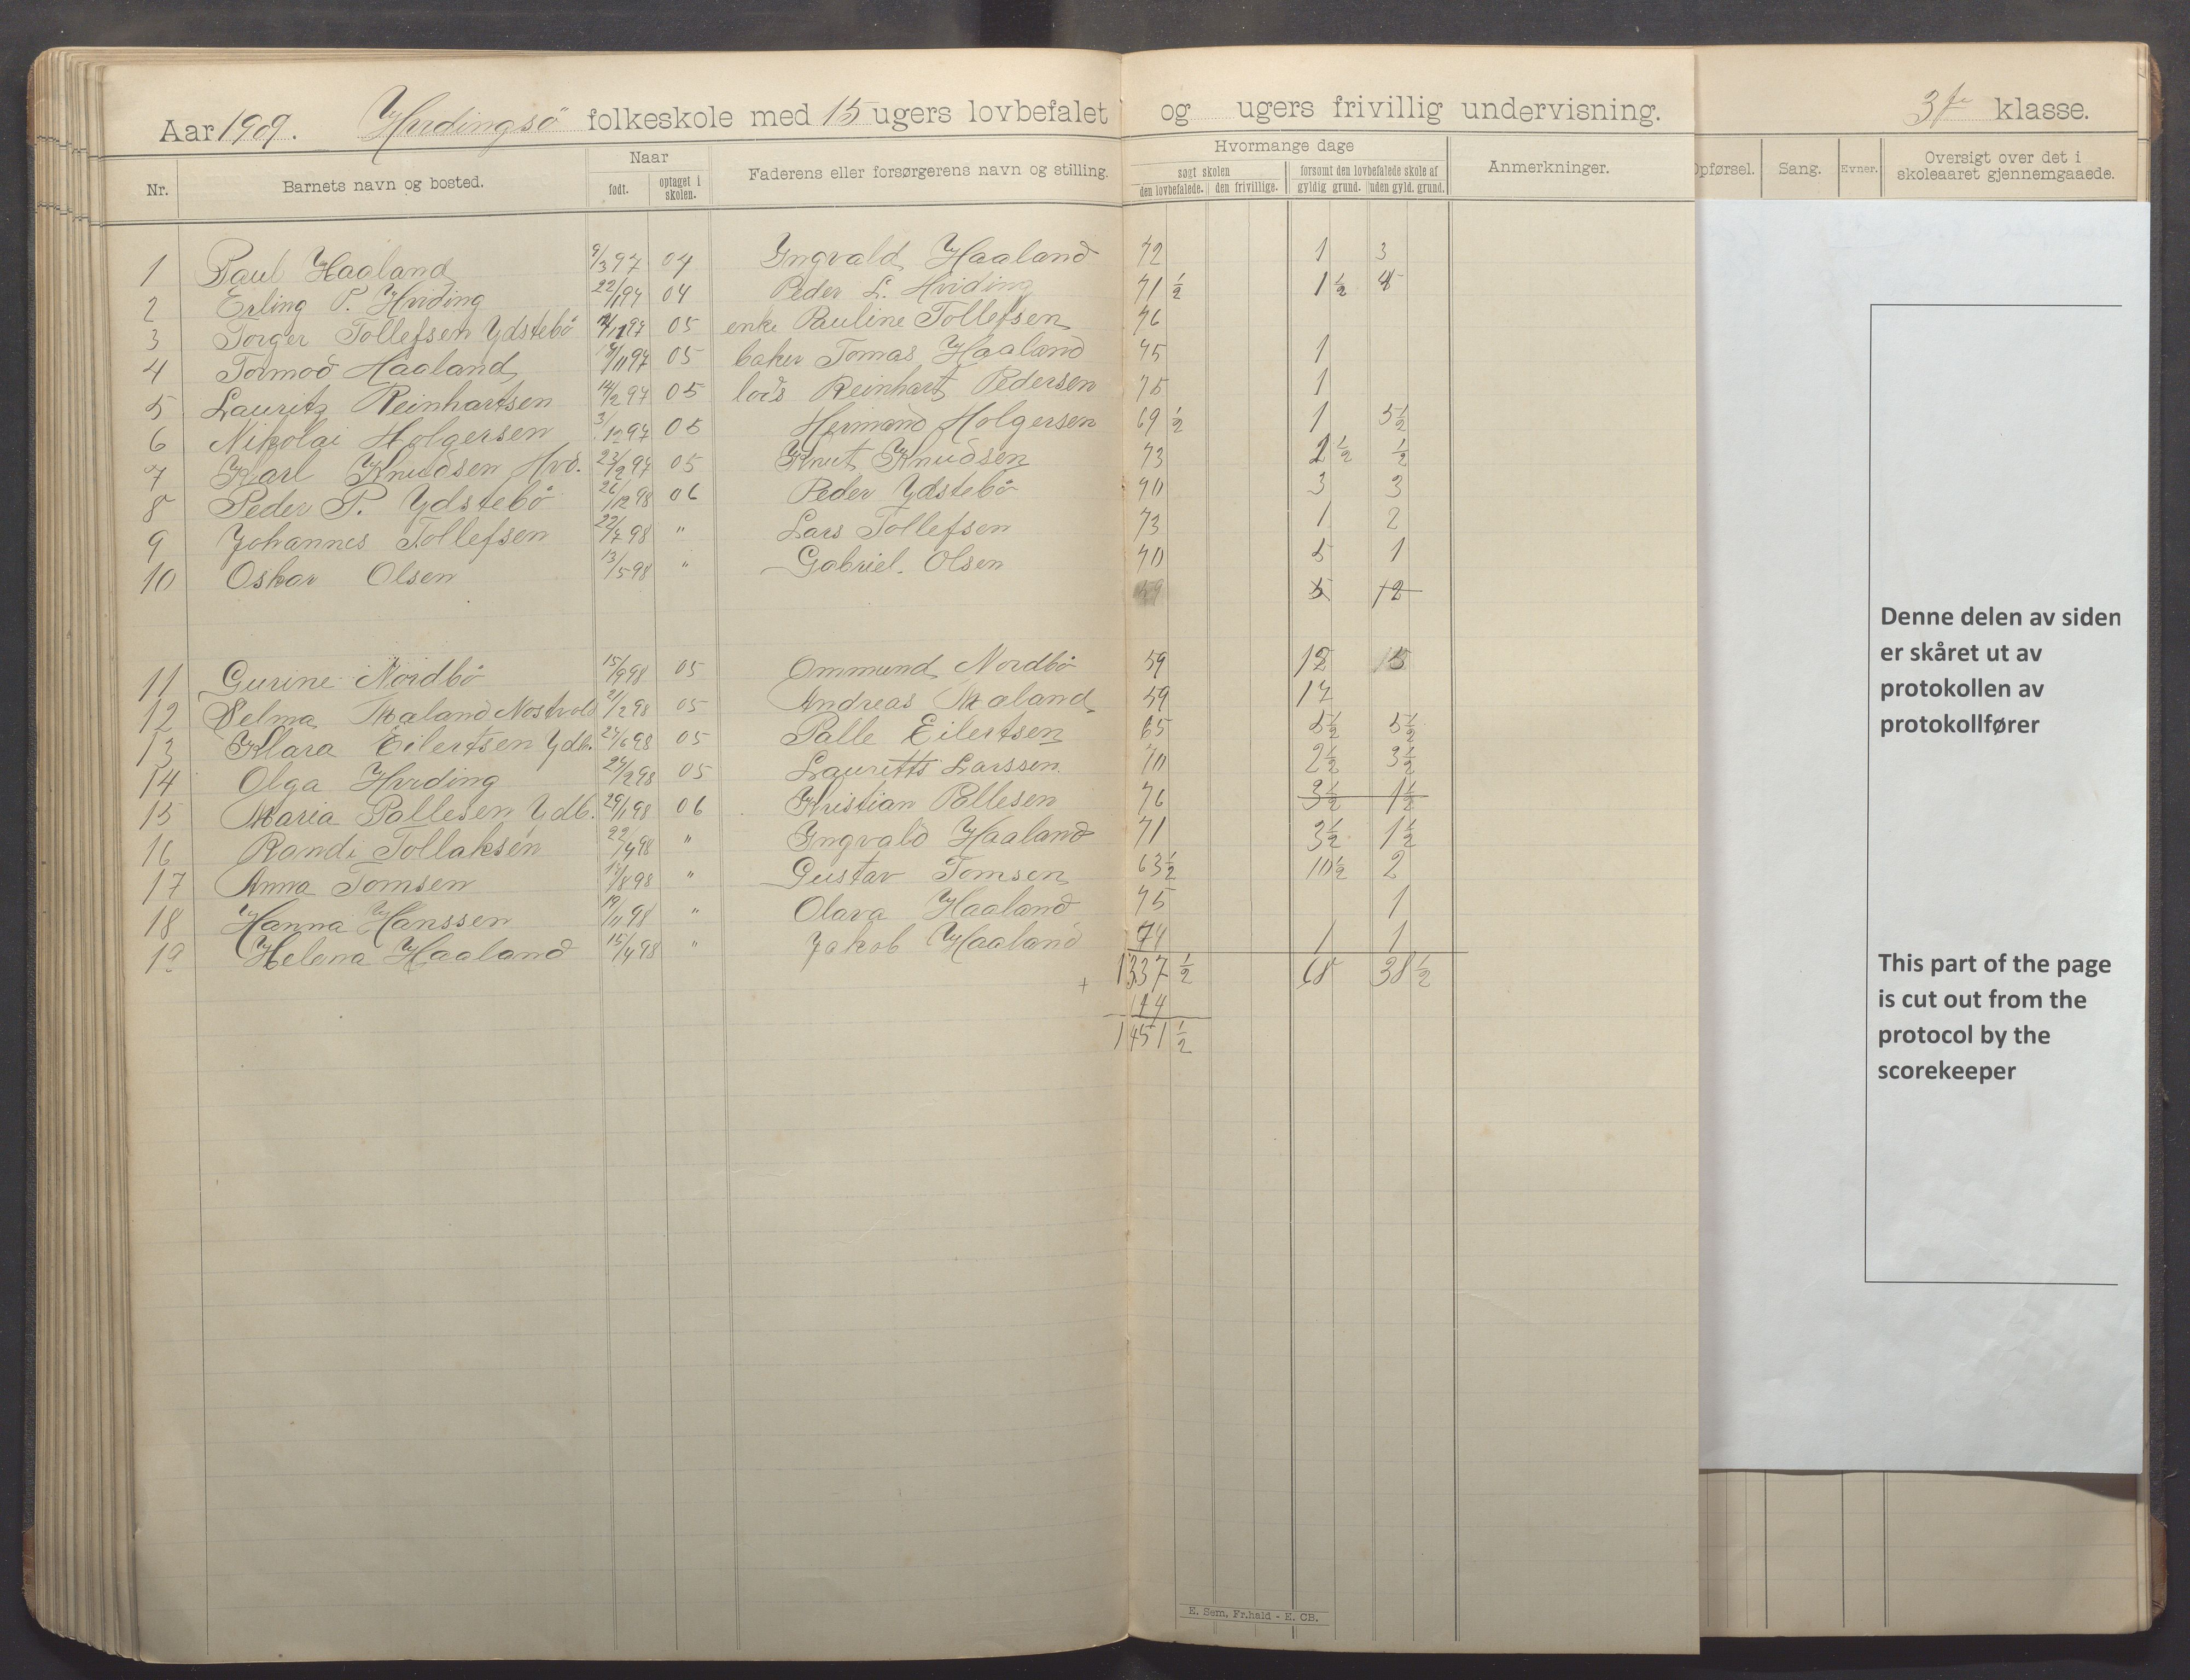 Aar 1909. Hvidingsö folkeskole med 15 ugers lovbefalet og ugers frivillig undervisning. 3die klasse.
Nr. Barnets navn og bosted. Naar født. optaget i skolen. Faderens eller forsørgerens navn og stilling. Hvormange dage søgt skolen den lovbefalede. den frivillige. forsømt den lovbefalede skole af gyldig grund. uden gyld. grund. Anmerkninger. Opførsel. Sang. Evner. Oversigt over det i skoleaaret gjennemgaaede.
1 Paul Haaland 9/3 97 04 Ingvald Haaland 72 1 3
2 Erling P. Hviding 22/1 97 04 Peder L. Hviding 71 ½ 1 ½ 4
3 Torger Tollefsen Ydstebö 97 05 enke Pauline Tollefsen 76
4 Tormod Haaland /11 97 05 baker Tomas Haaland 75 1
5 Lauritz Reinhartsen 14/2 97 05 lods Reinhart Pedersen 75 1
6 Nikolai Holgersen 3/12 97 05 Hermand Holgersen 69 ½ 1 5½
7 Karl Knudsen Hvd. 23/2 97 05 Knut Knudsen 73 ½ ½
8 Peder P. Ydstebö 26/12 98 06 Peder Ydstebö 70 3 3
9 Johannes Tollefsen 22/7 98 " Lars Tollefsen 73 1 2
10 Oskar Olsen 13/5 98 " Gabriel Olsen 70 5 1
5 12
11 Gurine Nordbö 15/9 98 05 Ommund Nordbö 59 12
12 Selma Mæland Nostvold 21/2 98 05 Andreas Mæland 59 17
13 Klara Eilertsen Ydb. 27/6 98 05 Palle Eilertsen 65 5½ 5½
14 Olga Hviding 24/2 98 05 Lauritts Larssen 70 2½ 3½
15 Maria Pallesen Ydb. 29/1 98 06 Kristian Pallesen 76 3½ 1½
16 Randi Tollaksen 22/4 98 " Ingvald Haaland 71 3½ 1½
17 Anna Tomsen 17/8 98 " Gustav Tomsen 63½ 10½ 2
18 Hanna Hanssen 19/11 98 " Olava Haaland 75 1
19 Helena Haaland 15/4 98 " Jakob Haaland 74 1 1
1337 ½ 68 38 ½
+ 114
1451 ½
Denne delen av siden
er skåret ut av
protokollen av
protokollfører
This part of the page
is cut out from the
protocol by the
scorekeeper
E. Sem, Fr.hald - E. CB.